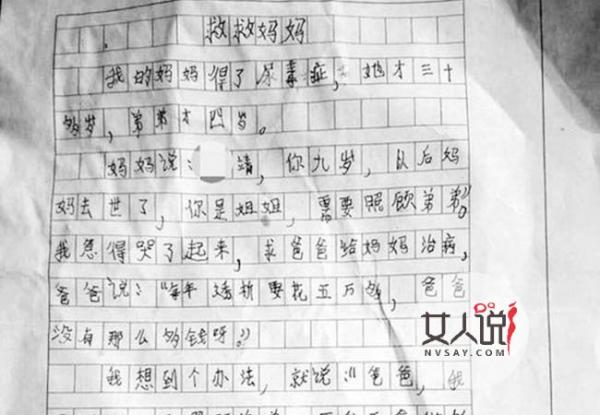 救救妈妈
我的妈妈得了尿毒症，她才三十
多岁，弟弟才四岁。
妈妈说：靖，你九岁，以后妈
妈去世了，你是姐姐，需要照顾弟弟”。
我急得哭了起来，求爸爸给妈妈治病，
爸爸说：“每年透析要花五万多，爸爸
没有那么多钱呀。”
我想到个办法，就说“爸爸，我
女人说
NVSAY.COM